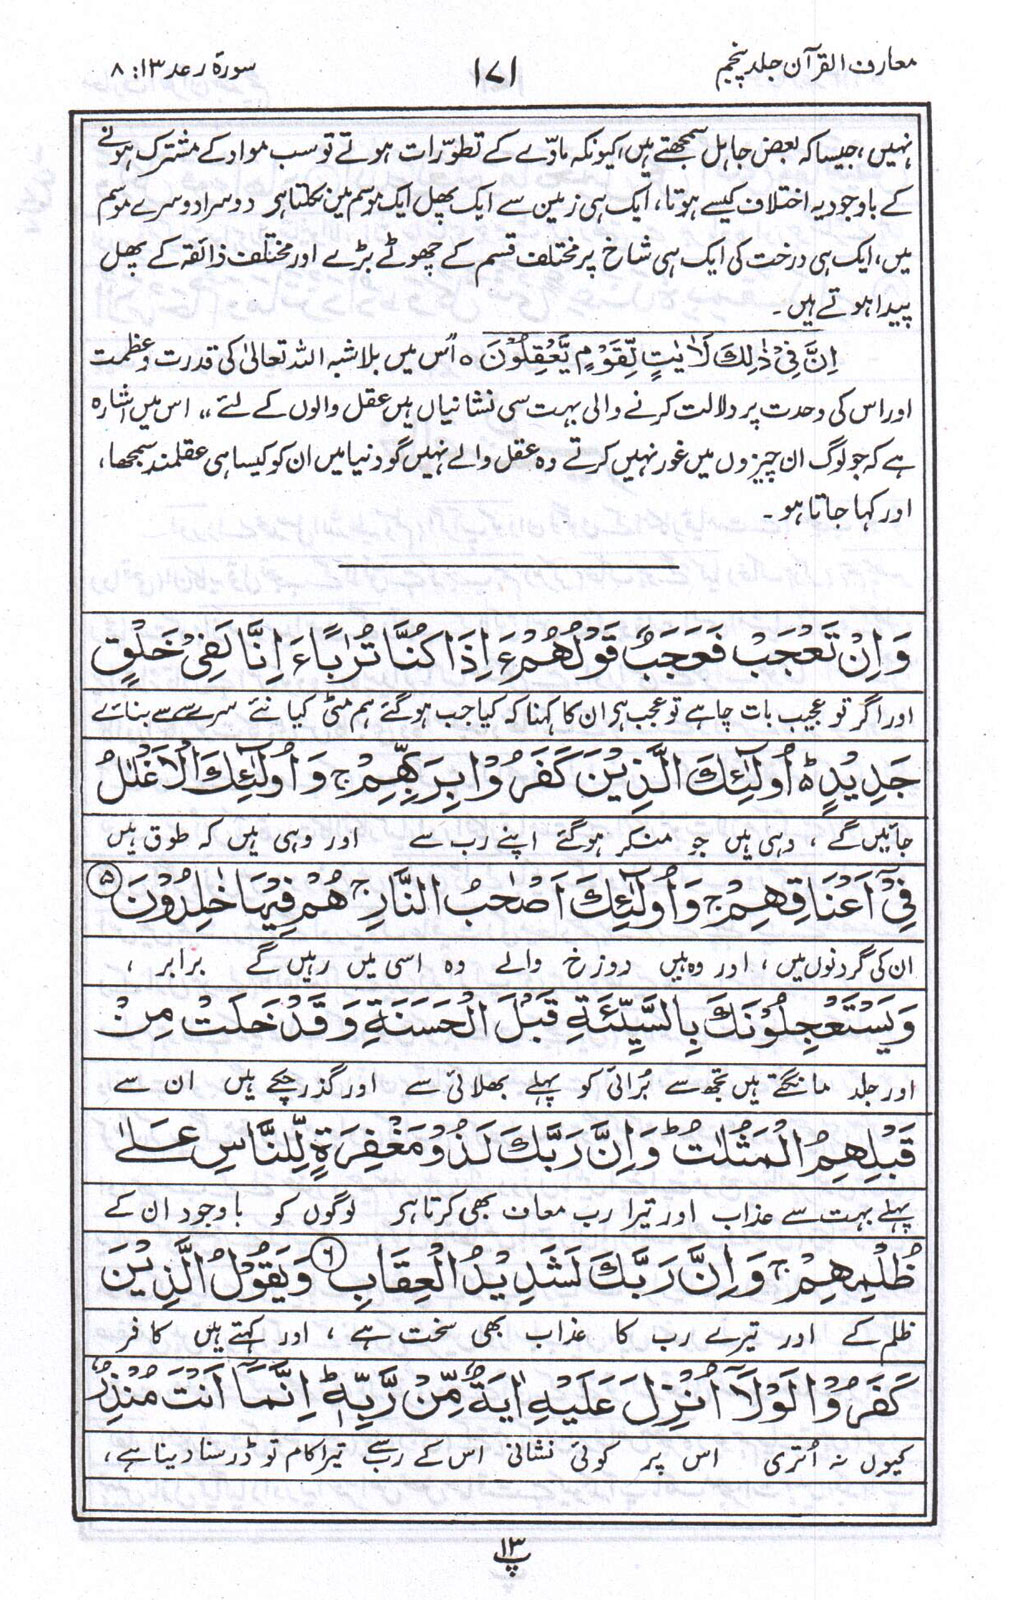 معارف القرآن جلد پنجم
۱۷۱
سورۂ رعد ۱۳: ۸
نہیں، جیسا کہ بعض جاہل سمجھتے ہیں، کیونکہ مادّے کے تطوّرات ہوتے تو سب مواد کے مشترک ہونے
کے باوجود یہ اختلاف کیسے ہوتا، ایک ہی زمین سے ایک پھل ایک موسم میں نکلتا ہر دوسرا دوسرے موسم
میں، ایک ہی درخت کی ایک ہی شاخ پر مختلف قسم کے چھوٹے بڑے اور مختلف ذائقہ کے پھل
پیدا ہوتے ہیں۔
اِنَّ فِیْ ذٰلِكَ لَاٰیٰتٍ لِّقَوْمٍ یَّعْقِلُوْنَ ٥ "اس میں بلا شبہ اللہ تعالیٰ کی قدرت و عظمت
اور اس کی وحدت پر دلالت کرنے والی بہت سی نشانیاں ہیں عقل والوں کے لئے،، اس میں اشارہ
ہے کہ جو لوگ ان چیزوں میں غور نہیں کرتے وہ عقل والے نہیں گو دنیا میں ان کو کیسا ہی عقلمند سمجھا،
اور کہا جاتا ہو۔
وَ اِنْ تَعْجَبْ فَعَجَبٌ قَوْلُهُمْ ءَ اِذَا كُنَّا تُرٰبًا ءَ اِنَّا لَفِیْ خَلْقٍ
اور اگر تو عجیب بات چاہے تو عجب ہر ان کا کہنا کہ کیا جب ہو گئے ہم مٹی کیا نئے سرے سے بنائے
جَدِیْدٍ ؕ اُولٰٓئِكَ الَّذِیْنَ كَفَرُوْا بِرَبِّهِمْ ۚ وَ اُولٰٓئِكَ الْاَغْلٰلُ
جائیں گے، وہی ہیں جو منکر ہو گئے اپنے رب سے اور وہی ہیں کہ طوق ہیں
فِیْۤ اَعْنَاقِهِمْ ۚ وَ اُولٰٓئِكَ اَصْحٰبُ النَّارِ ۚ هُمْ فِیْهَا خٰلِدُوْنَ ۵
ان کی گردنوں میں، اور وہ ہیں دوزخ والے وہ اسی میں رہیں گے برابر،
وَ یَسْتَعْجِلُوْنَكَ بِالسَّیِّئَةِ قَبْلَ الْحَسَنَةِ وَ قَدْ خَلَتْ مِنْ
اور جلد مانگتے ہیں تجھ سے بُرائی کو پہلے بھلائی سے اور گذر چکے ہیں ان سے
قَبْلِهِمُ الْمَثُلٰتُ ؕ وَ اِنَّ رَبَّكَ لَذُوْ مَغْفِرَةٍ لِّلنَّاسِ عَلٰی
پہلے بہت سے عذاب اور تیرا رب معاف بھی کرتا ہر لوگوں کو باوجود ان کے
ظُلْمِهِمْ ۚ وَ اِنَّ رَبَّكَ لَشَدِیْدُ الْعِقَابِ ۶ وَ یَقُوْلُ الَّذِیْنَ
ظلم کے اور تیرے رب کا عذاب بھی سخت ہے، اور کہتے ہیں کافر
كَفَرُوْا لَوْلَاۤ اُنْزِلَ عَلَیْهِ اٰیَةٌ مِّنْ رَّبِّهٖ ؕ اِنَّمَاۤ اَنْتَ مُنْذِرٌ
کیوں نہ اُتری اس پر کوئی نشانی اس کے رب سے تیرا کام تو ڈر سنا دینا ہے،
پ ۱۳